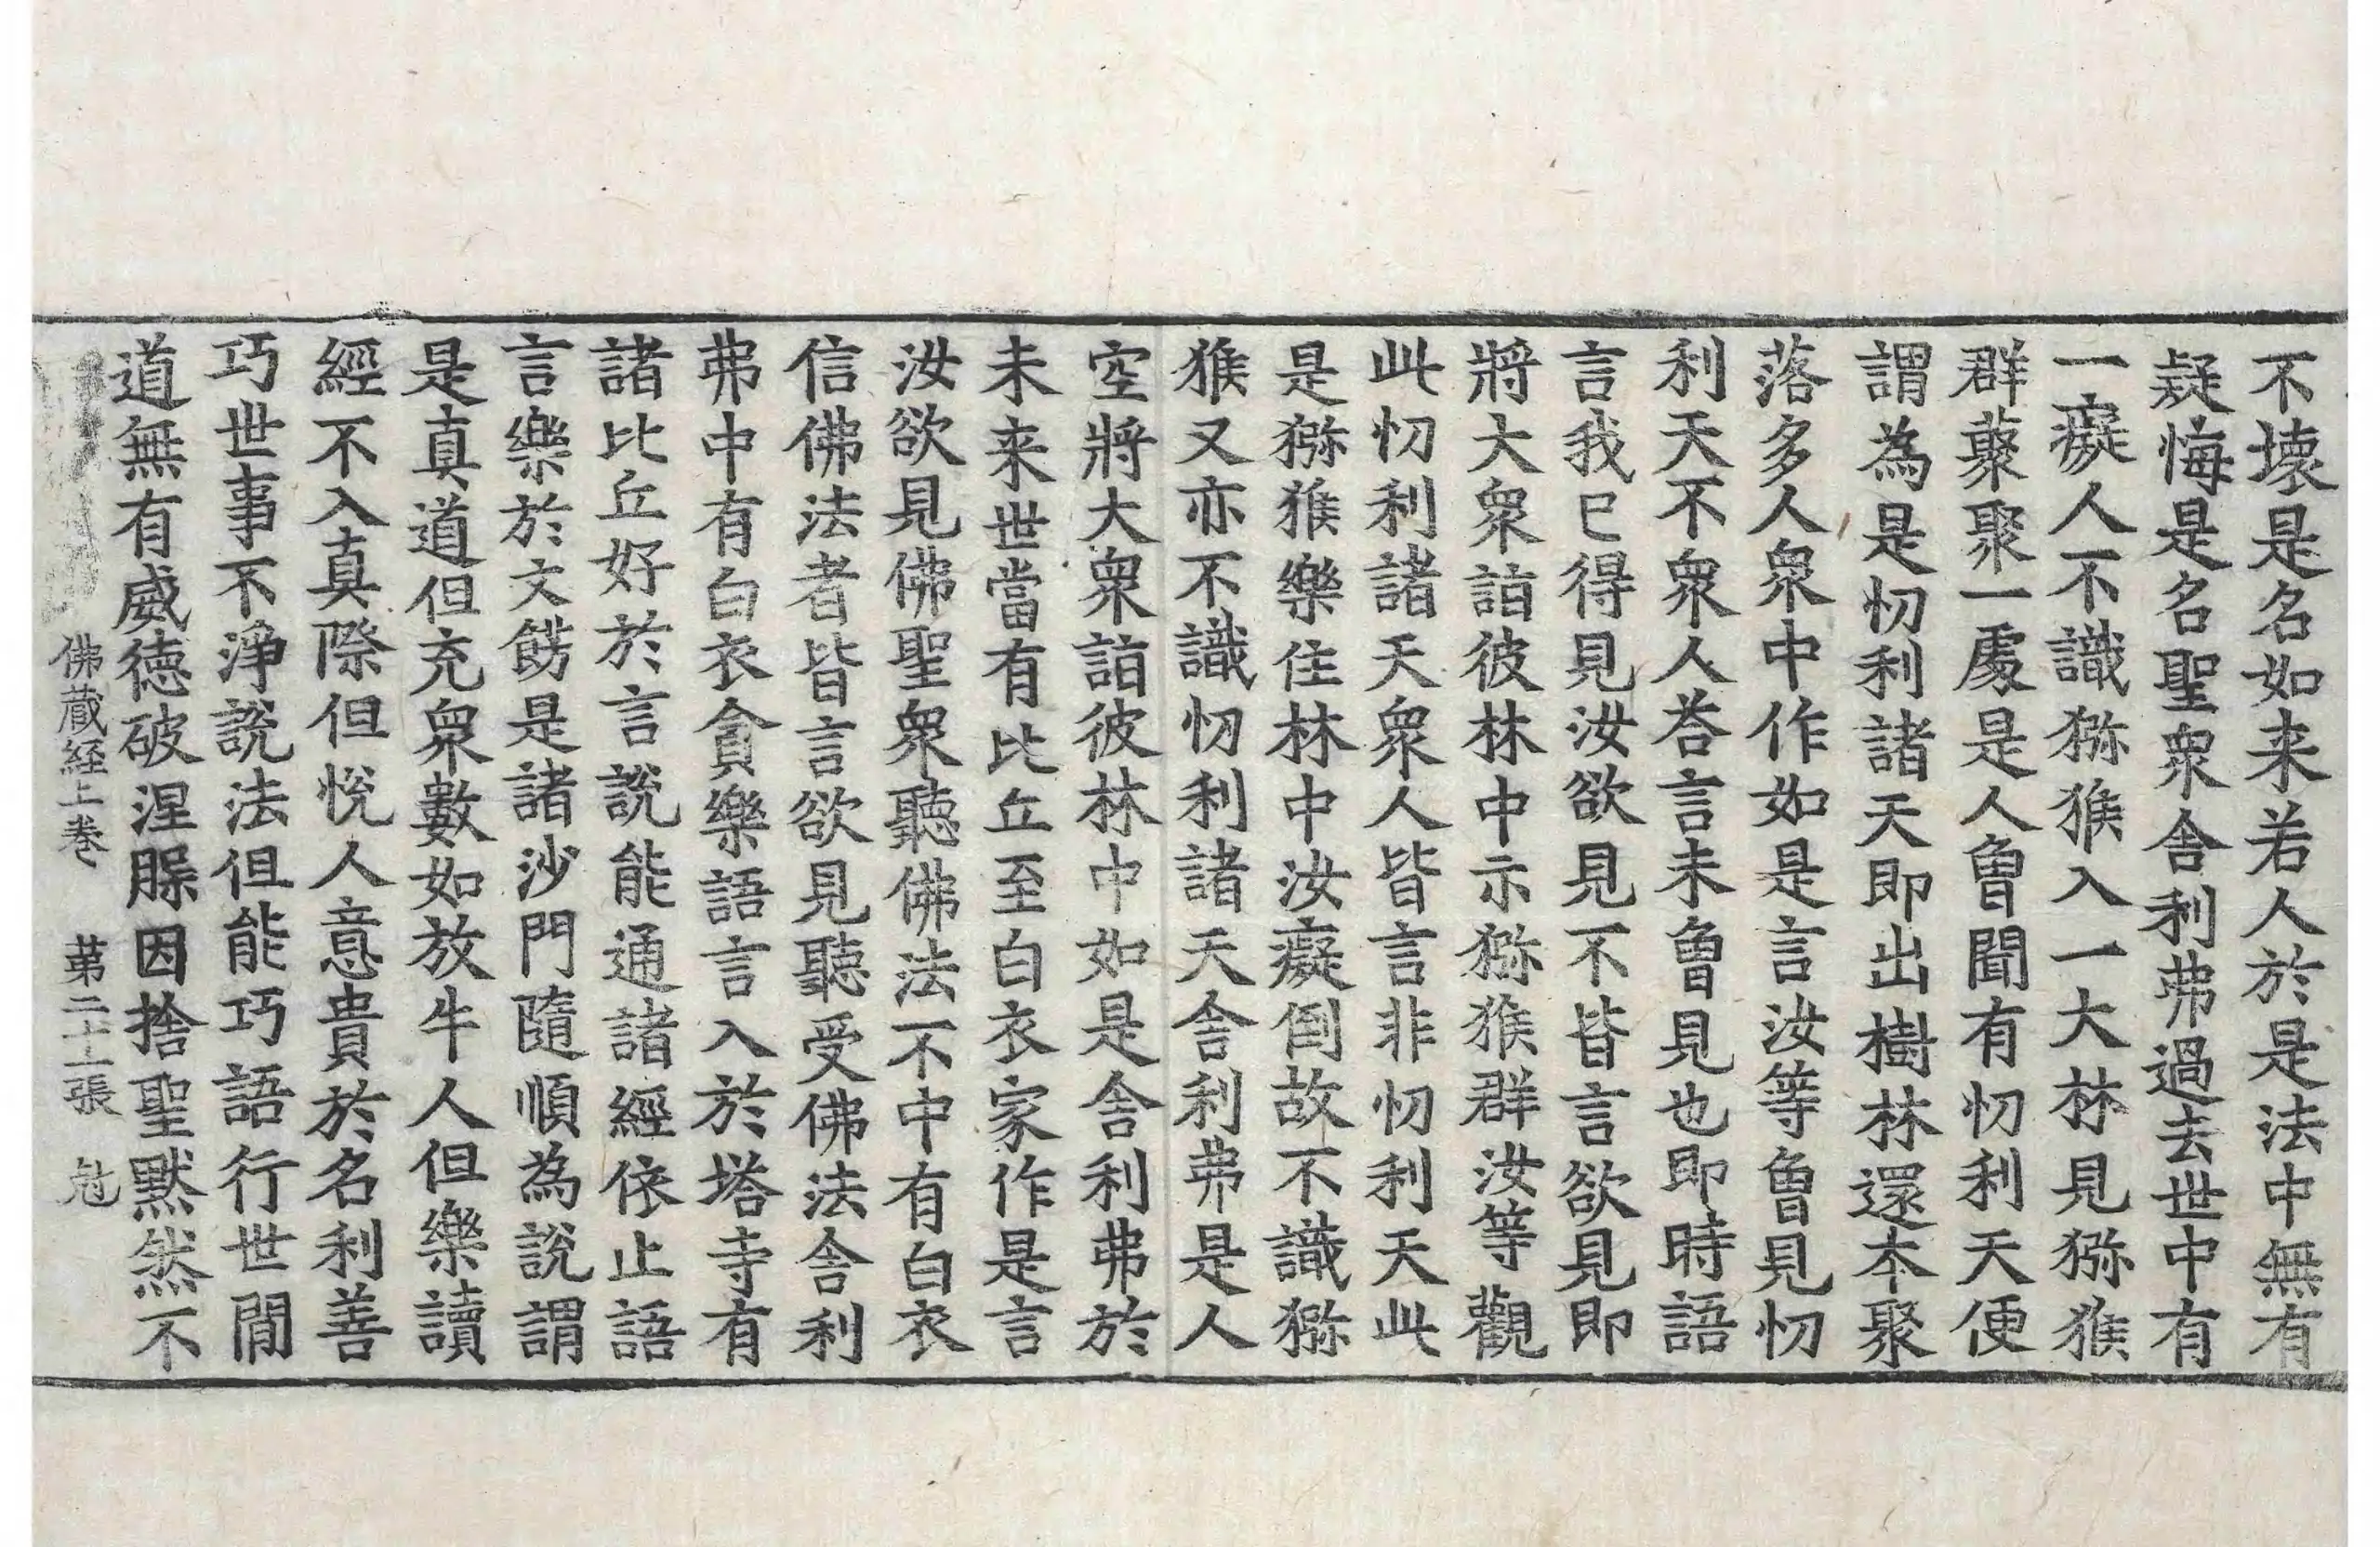 不壞是名如来若人於是法中無有
疑悔是名聖衆舎利弗過去世中有
一癡人不識猕猴入一大林見猕猴
群藂聚一處是人曾聞有忉利天便
謂為是忉利諸天即出樹林還本聚
落多人衆中作如是言汝等曾見忉
利天不衆人荅言未曾見也即時語
言我已得見汝欲見不皆言欲見即
將大衆詣彼林中示猕猴群汝等觀
此忉利諸天衆人皆言非忉利天此
是猕猴樂住林中汝癡倒故不識猕
猴又亦不識忉利諸天舎利弗是人
空將大衆詣彼林中如是舎利弗於
未来世當有比丘至白衣家作是言
汝欲見佛聖衆聽佛法不中有白衣
信佛法者皆言欲見聽受佛法舎利
弗中有白衣貪樂語言入於塔寺有
諸比丘好於言說能通諸經依止語
言樂於文餝是諸沙門隨順為說謂
是真道但充衆數如放牛人但樂讀
經不入真際但悅人意貴於名利善
巧世事不淨說法但能巧語行世閒
道無有威徳破涅槃因捨聖黙然不
佛蔵経上巻　苐二十一張　尅